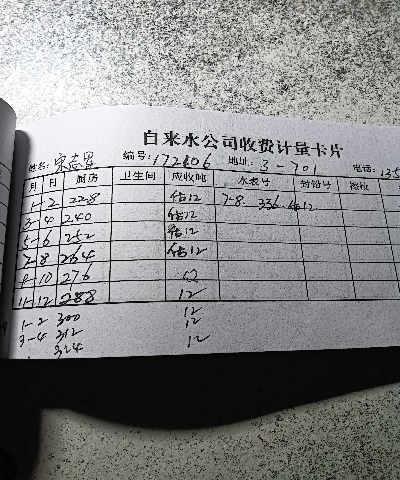 自来水公司收费计量卡片
姓名: 宋志 编号: 172406 地址: 3-701 电话: 135
月 月 厨房 卫生间 应收吨 水表号 铅钳号
1-2 228 估12 7-8 336 估12
3-4 240 估12
5-6 252 估12
7-8 264 估12
9-10 276 12
11-12 288 12
1-2 300 12
3-4 312 12
324 12